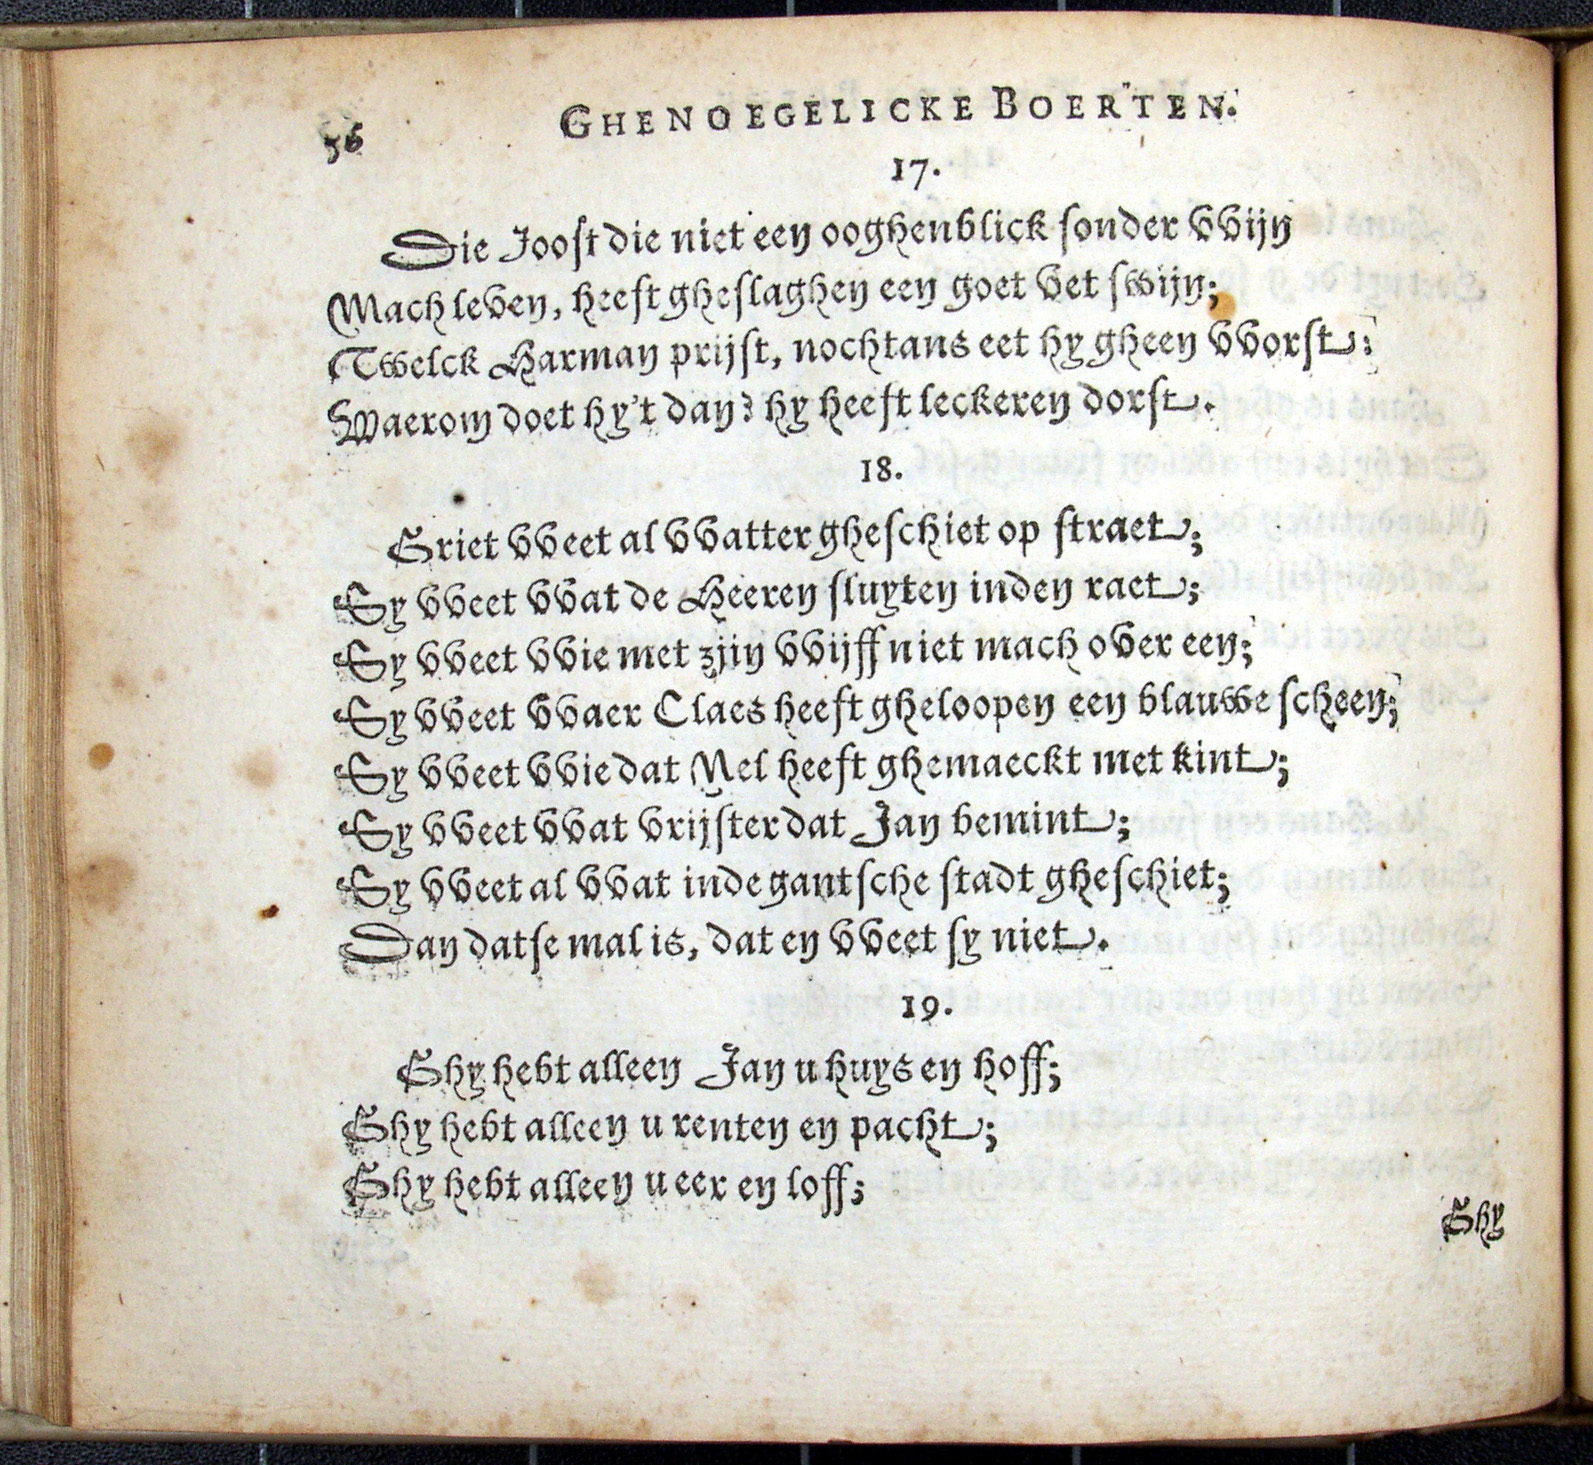 56
GHENOEGELICKE BOERTEN.
17.
Die Joost die niet een ooghenblick sonder vvijn
Mach leven, heeft gheslaghen een goet vet swijn;
Twelck Harman prijst, nochtans eet hy gheen vvorst:
Waerom doet hy't dan? hy heeft leckeren dorst.
18.
Griet vveet al vvatter gheschiet op straet;
Sy vveet vvat de Heeren sluyten inden raet;
Sy vveet vvie met zijn vvijff niet mach over een;
Sy vveet vvaer Claes heeft gheloopen een blauwe scheen;
Sy vveet vvie dat Nel heeft ghemaeckt met kint;
Sy vveet vvat vrijster dat Jan bemint;
Sy vveet al vvat inde gantsche stadt gheschiet;
Dan datse mal is, dat en vveet sy niet.
19.
Ghy hebt alleen Jan u huys en hoff;
Ghy hebt alleen u renten en pacht;
Ghy hebt alleen u eer en loff;
Ghy